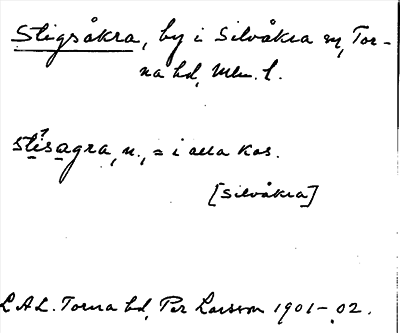 Stigsåkra, by i Silvåkra sn, Tor-
na hd, Mlm. l.
stisagra, n., = i alla kas.
[Silvåkra]
L.A.L. Torna hd, Per Larsson 1901-02.